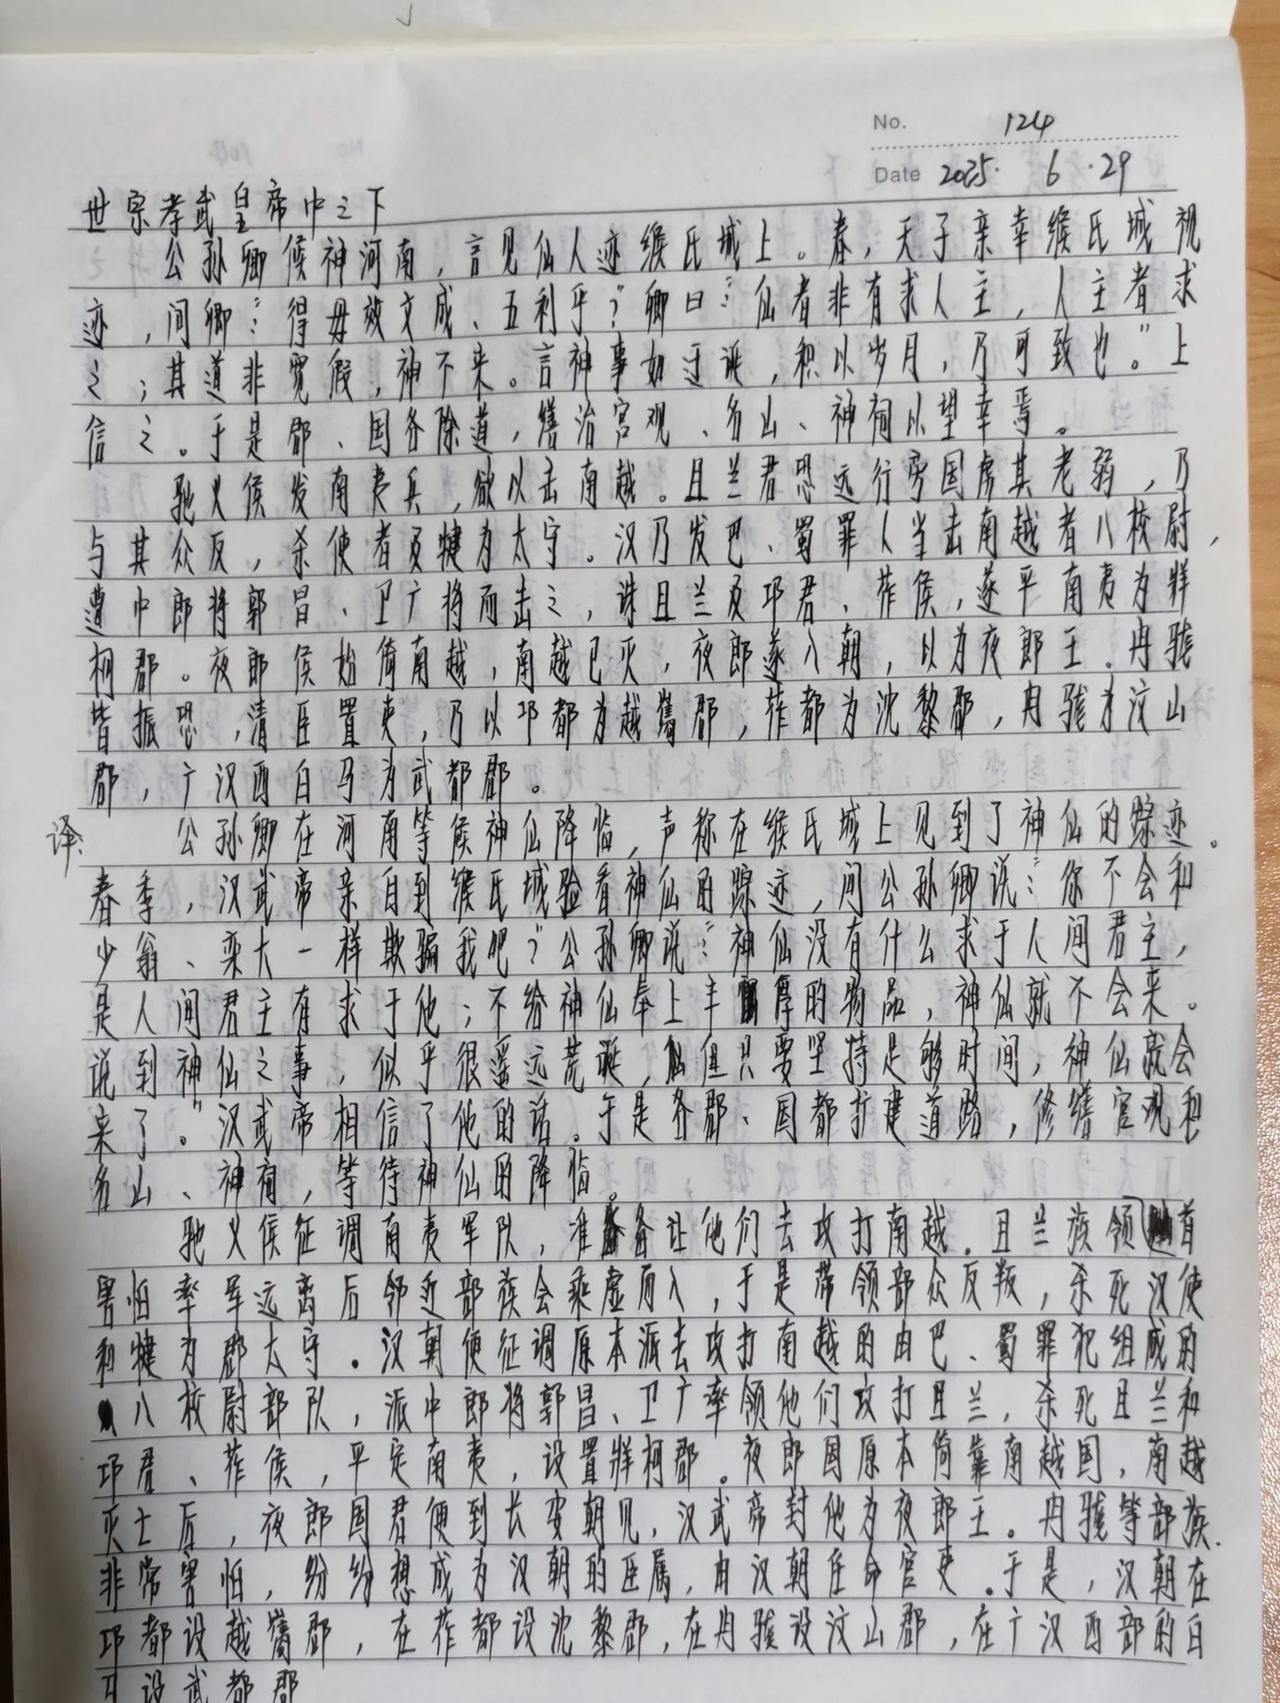 No. 124
Date 2025. 6.29
世宗孝武皇帝中之下
公孙卿候神河南，言见仙人迹缑氏城上。春，天子亲幸缑氏城视
迹，问卿：“得毋效文成、五利乎？”卿曰：“仙者非有求人主，人主者求
之；其道非宽假，神不来。言神事如迂诞，积以岁月，乃可致也。”上
信之。于是郡、国各除道，缮治宫观、名山、神祠以望幸焉。
驰义侯发南夷兵，欲以击南越。且兰君恐远行旁国虏其老弱，乃
与其众反，杀使者及犍为太守。汉乃发巴、蜀罪人当击南越者八校尉，
遣中郎将郭昌、卫广将而击之，诛且兰及邛君、莋侯，遂平南夷为牂
柯郡。夜郎侯始倚南越，南越已灭，夜郎遂入朝，以为夜郎王。冉駹
皆振恐，清臣置吏，乃以邛都为越嶲郡，莋都为沈黎郡，冉駹为汶山
郡，广汉西白马为武都郡。
译：公孙卿在河南等候神仙降临，声称在缑氏城上见到了神仙的踪迹。
春季，汉武帝亲自到缑氏城验看神仙的踪迹，问公孙卿说：“你不会和
少翁、栾大一样欺骗我吧？”公孙卿说：“神仙没有什么求于人间君主，
是人间君主有求于他；不给神仙奉上丰厚的物品，神仙就不会来。
说到神仙之事，似乎很遥远荒诞，但只要坚持足够时间，神仙就会
来了。”汉武帝相信了他的话。于是各郡、国都扩建道路，修缮宫观和
名山、神祠，等待神仙的降临。
驰义侯征调南夷军队，准备让他们去攻打南越。且兰族领首
害怕率军远离后邻近部族会乘虚而入，于是带领部众反叛，杀死汉使
和犍为郡太守。汉朝便征调原本派去攻打南越的由巴、蜀罪犯组成的
八校尉部队，派中郎将郭昌、卫广率领他们攻打且兰，杀死且兰和
邛君、莋侯，平定南夷，设置牂柯郡。夜郎国原本倚靠南越国，南越
灭亡后，夜郎国君便到长安朝见，汉武帝封他为夜郎王。冉駹等部族
非常害怕，纷纷想成为汉朝的臣属，由汉朝任命官吏。于是，汉朝在
邛都设越嶲郡，在莋都设沈黎郡，在冉駹设汶山郡，在广汉西部的白
马设武都郡